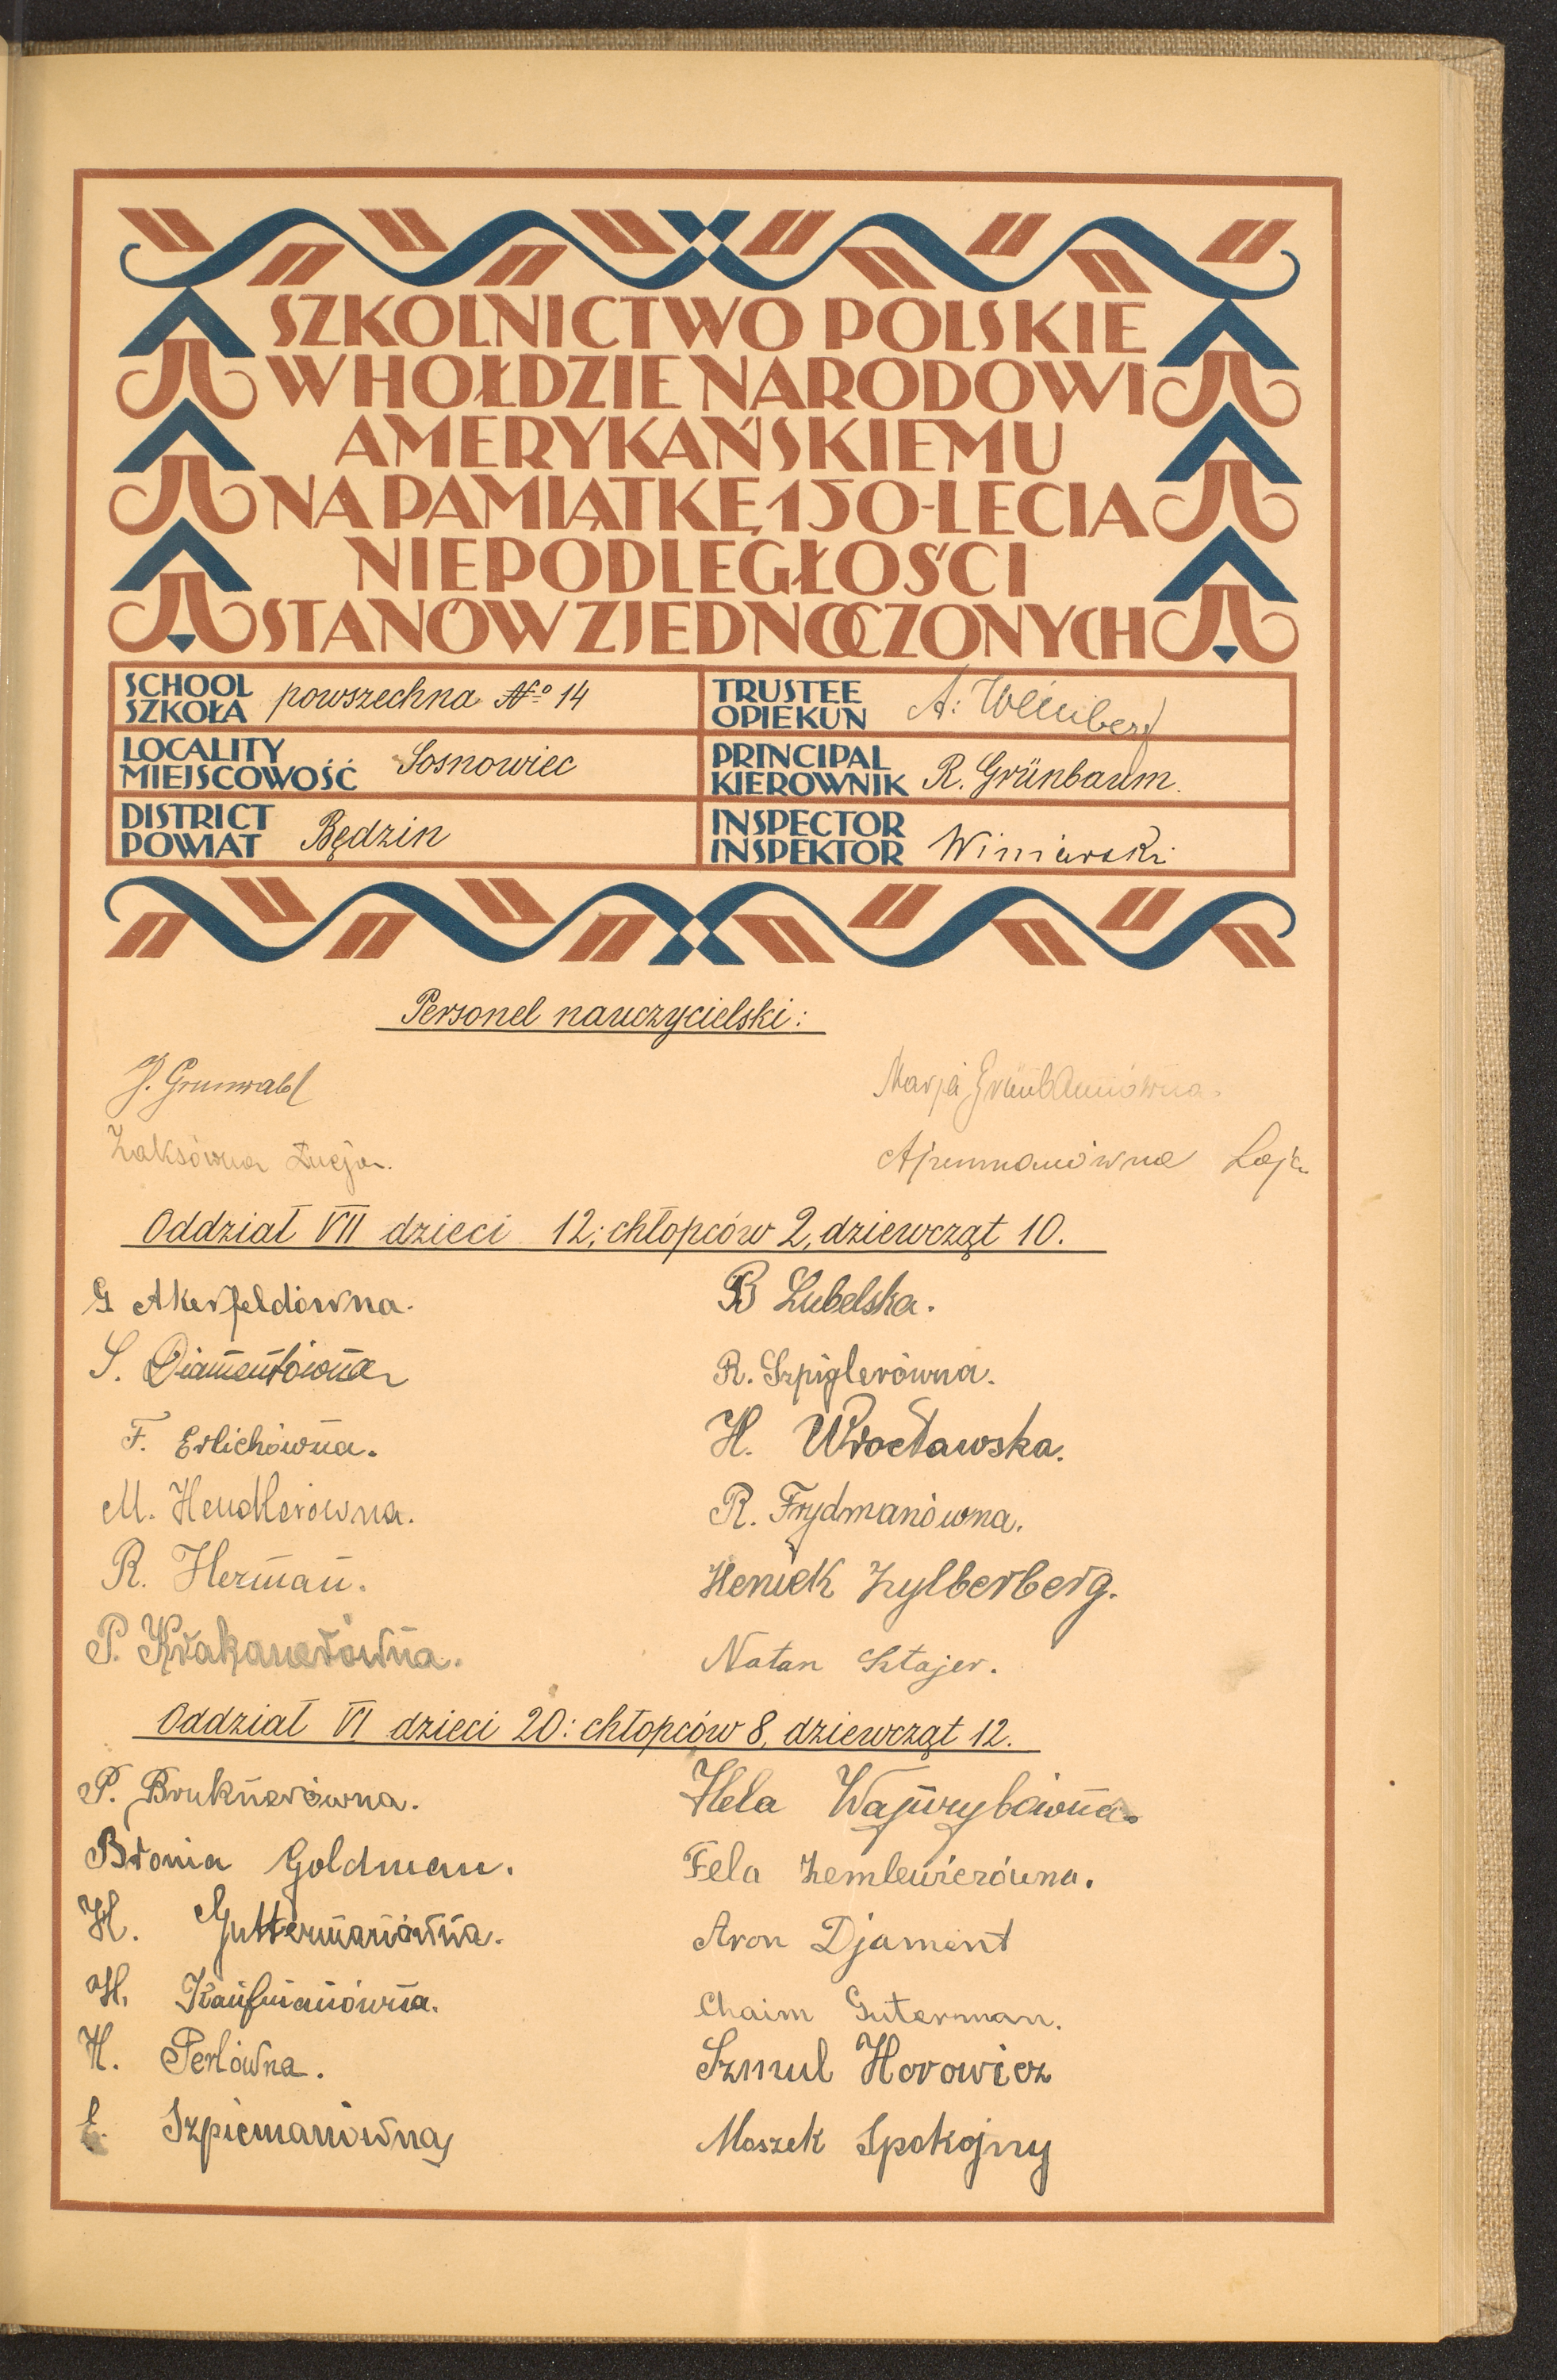 SZKOLNICTWO POLSKIE
W HOŁDZIE NARODOWI
AMERYKAŃSKIEMU
NA PAMIĄTKĘ 150-LECIA
NIEPODLEGŁOŚCI
STANÓW ZJEDNOCZONYCH
SCHOOL
SZKOŁA powszechna No 14
TRUSTEE
OPIEKUN A. Weinberg
LOCALITY
MIEJSCOWOŚĆ Sosnowiec
PRINCIPAL
KIEROWNIK R. Grünbaum.
DISTRICT
POWIAT Będzin
INSPECTOR
INSPEKTOR Winiarski
Personel nauczycielski:
J. Grunwald
Marja Grünbaumówna.
Zaksówna Łucja.
Ajzenmanówna
Oddział VII dzieci 12; chłopców 2, dziewcząt 10.
G Akerfeldówna.
B Lubelska.
S. Diamentówna
R. Szpiglerówna.
F. Erlichówna.
H. Wrocławska.
M. Hendlerówna.
R. Frydmanówna.
R. Herman.
Heniek Zylberberg.
P. Krakauerówna.
Natan Sztajer.
Oddział VI dzieci 20: chłopców 8, dziewcząt 12.
P. Bruknerówna.
Hela Wajnrybówna.
Bronia Goldman.
Fela Zemlewiczówna.
H. Guttermanówna.
Aron Djament
H. Kaufmanówna.
Chaim Guterman.
H. Perlówna.
Szmul Horowicz
E. Szpicmanówna
Moszek Spokojny